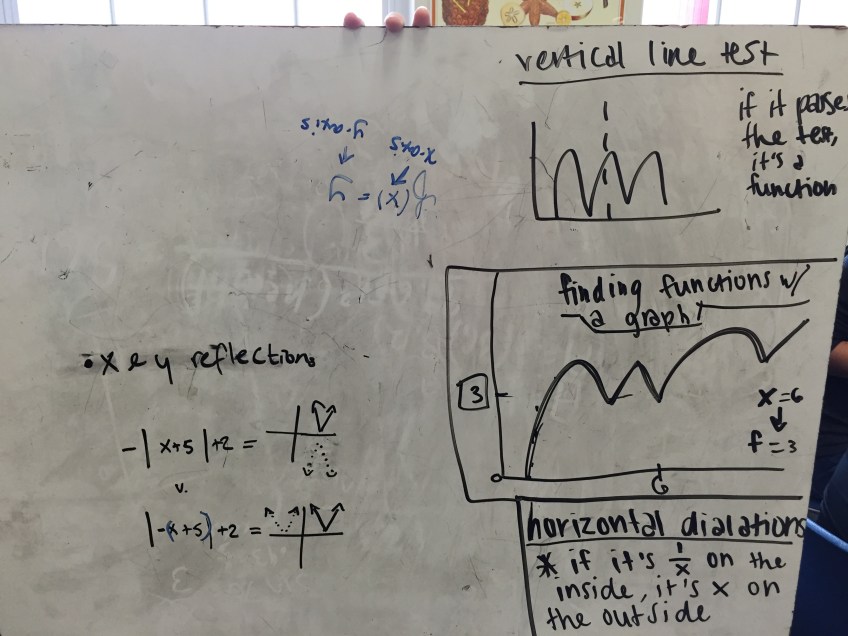 vertical line test
if it passes
the test,
it's a
function
y-axis
x-axis
f(x) = y
finding functions w/
a graph!
3
x=6
f=3
6
• x & y reflections
-|x+5|+2 =
v.
|-(x+5)|+2 =
horizontal dialations
* if it's 1/x on the
inside, it's x on
the outside